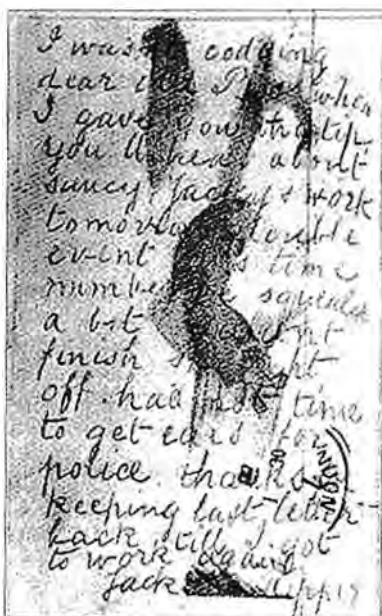 I was codding
dear old Boss when
I gave you the tip
you'll hear about
saucy Jackys work
tomorrow double
event this time
number one squealed
a bit couldnt
finish straight
off. had not time
to get ears for
police. thanks for
keeping last letter
back till I got
to work again
Jack Ripper